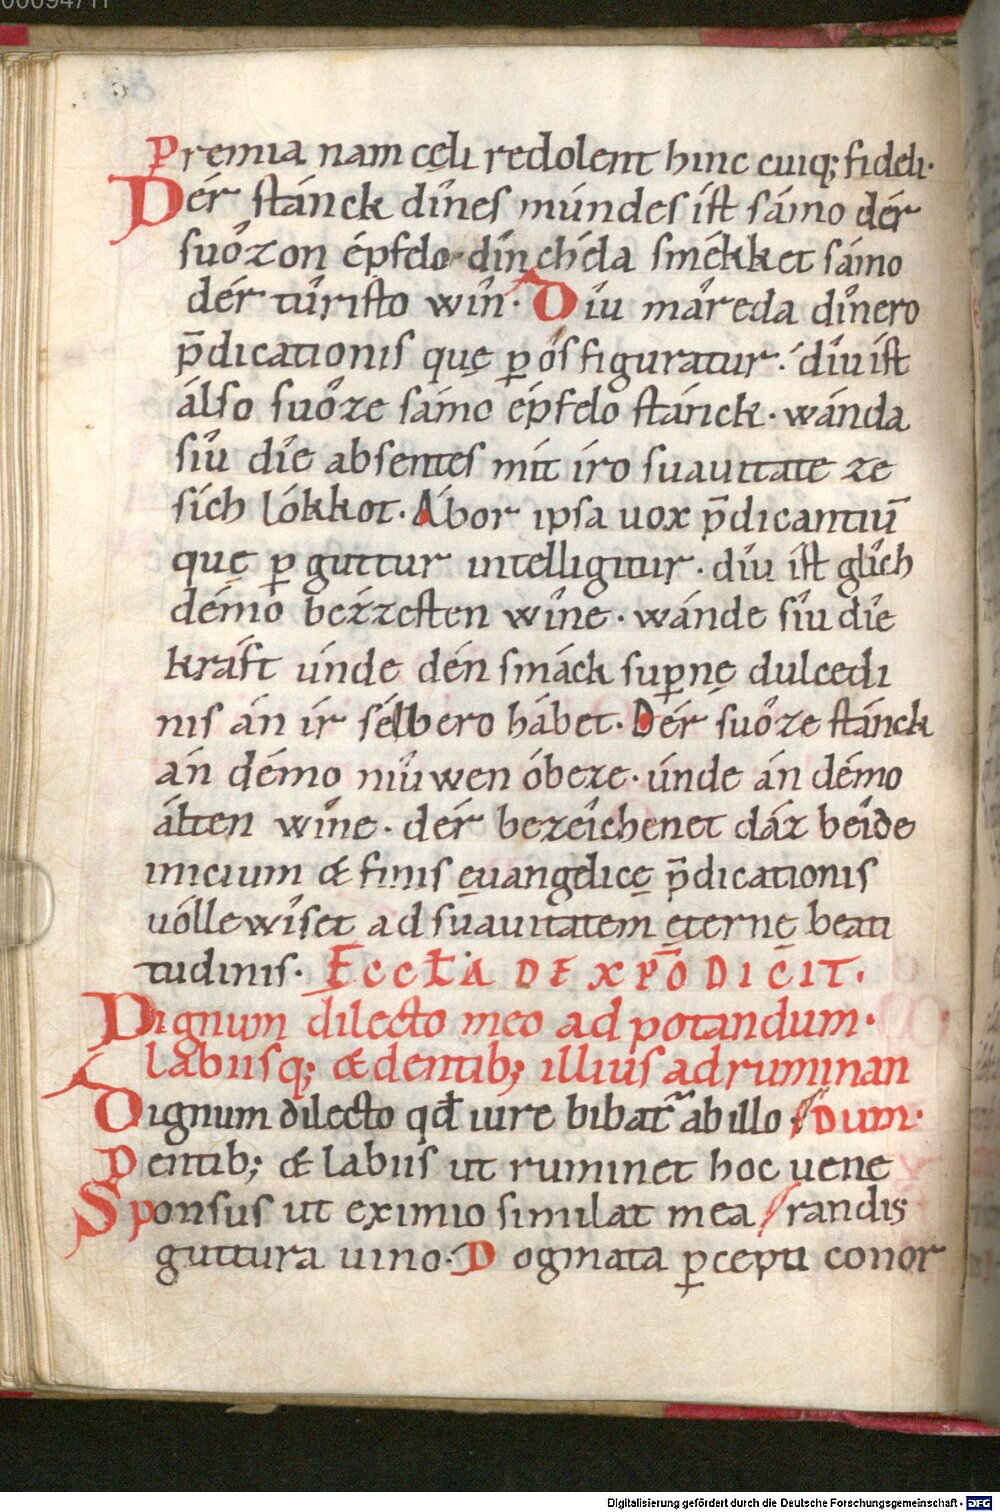 00094711
Premia nam cęli redolent hinc cuiq; fideli·
Dér stánck dínes múndes ist sámo dér
suͦ́zon épfelo· dín chéla smékket sámo
dér tûristo wîn· Díu mâreda dînero
p̄dicationis quę ꝑ ós figuratur· díu ist
álso suͦ́ze sámo épfelo stánck· wánda
síu díe absentes mit iro suauitate ze
sích lókkot· Ábor ipsa uox p̄dicantiū
quę ꝑ guttur intelligitur· díu ist glîch
démo bézzesten wîne· wánde síu díe
kráft únde dén smáck supernę dulcedi
nis án ír sélbero hábet· Dér suͦ́ze stánck
án démo níuwen óbeze· únde án démo
álten wîne· dér bezéichenet dáz béide
inicium & finis ęuangelicę p̄dicationis
uóllewîset ad suauitatem ęternę beati
tudinis· ECCŁA DE XP̄O DICIT·
Dignum dilecto meo ad potandum·
labiisq; & dentib; illius ad ruminan
Dignum dilecto qđ iure bibat᷒ ab illo· dum·
Dentib; & labiis ut ruminet hoc uene
Sponsus ut eximio simulat mea randis
guttura uino· Dogmata ꝑcepti conor
Digitalisierung gefördert durch die Deutsche Forschungsgemeinschaft - DFG